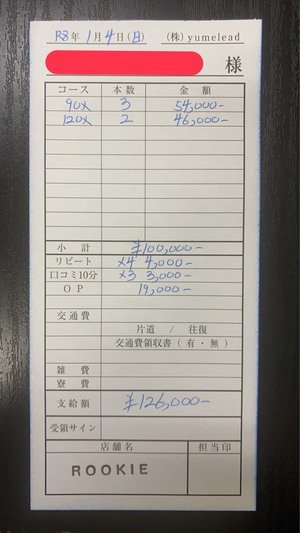 R8年 1月 4日(日) (株)yumelead
様
コース 本数 金額
90× 3 54,000-
120× 2 46,000-
小計 ¥100,000-
リピート ×4 4,000-
口コミ10分 ×3 3,000-
OP 19,000-
交通費
片道 / 往復
交通費領収書(有・無)
雑費
寮費
支給額 ¥126,000-
受領サイン
店舗名 担当印
ROOKIE